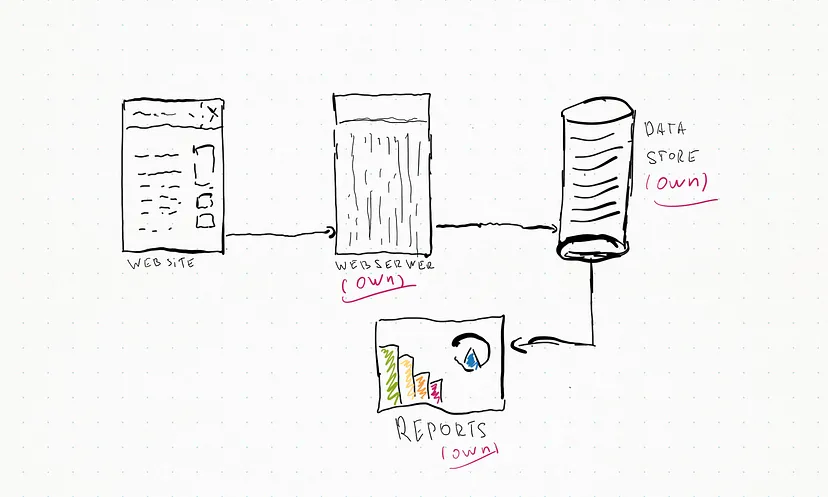 WEBSITE
WEBSERWER
(OWN)
DATA
STORE
(OWN)
REPORTS
(OWN)